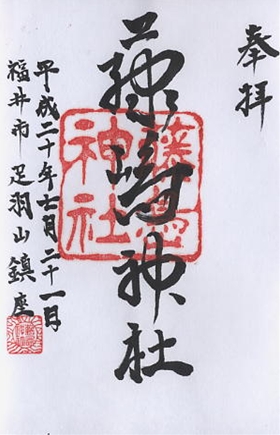 奉拝
藤島神社
藤島神社
平成二十年七月二十一日
福井市足羽山鎮座